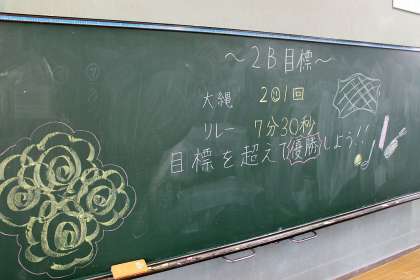 ～2B目標～
大縄 201回
リレー 7分30秒
目標を超えて優勝しよう!!